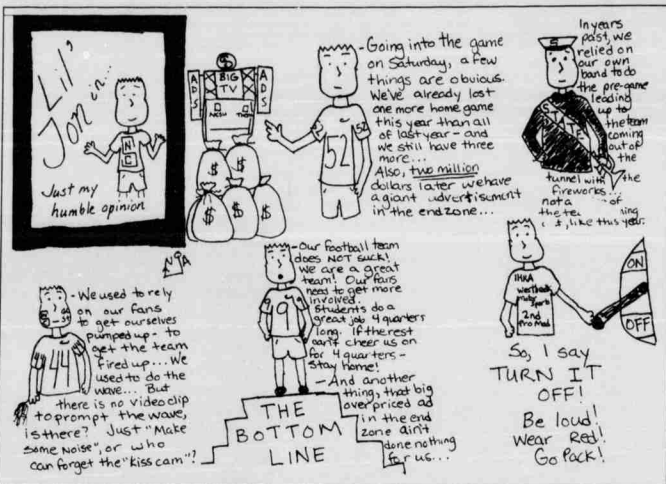 Lil'
Jon in...
N
C
Just my
humble opinion
ADS
$
BIG
TV
ADS
NCSU
$
$
$
$
$
52
52
-Going into the game
on Saturday, a few
things are obvious.
We've already lost
one more home game
this year than all
of last year - and
we still have three
more...
Also, two million
dollars later we have
a giant advertisment
in the endzone...
STATE
In years
past, we
relied on
our own
band to do
the pre-game
leading
up to
the team
coming
out of
the
tunnel with the
fireworks...
not a of
the
like this year.
-We used to rely
on our fans
to get ourselves
pumped up - to
get the team
fired up... We
used to do the
wave... But
there is no video clip
to prompt the wave,
is there? Just "Make
some Noise", or who
can forget the "kiss cam"?
9
-Our football team
does NOT suck!
We are a great
team! Our fans
need to get more
involved.
Students do a
great job 4 quarters
long. If the rest
can't cheer us on
for 4 quarters -
Stay home!
-And another
thing, that big
overpriced ad
in the end
zone ain't
done nothing
for us...
THE
BOTTOM
LINE
IHRA
2nd
Pro Mod
ON
OFF
So, I say
TURN IT
OFF!
Be loud!
Wear Red!
Go Pack!